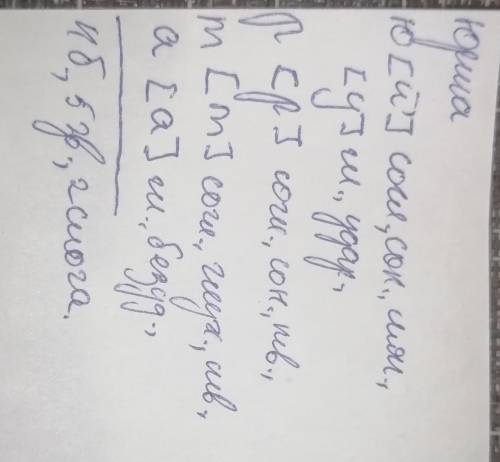 Юрта
Ю [й'] согл, сон, мяг.,
[у] гл., удар.,
р [р] согл., сон., тв.,
т [т] согл., глух., тв.,
а [а] гл., безуд.,
4б, 5 зв, 2 слога.